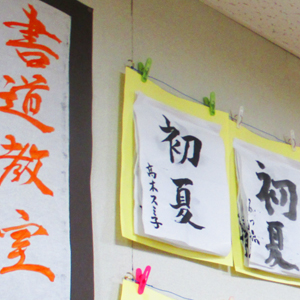 書道教室
初夏
高木スミ子
初夏